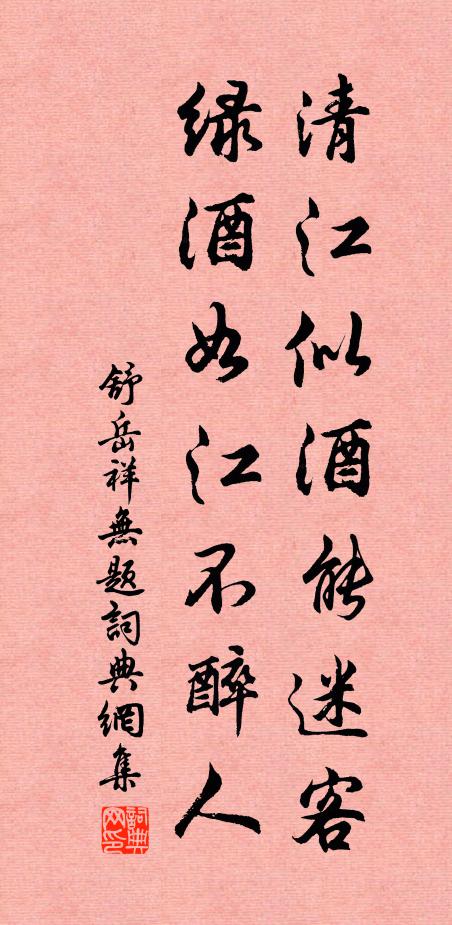 清江似酒能迷客
绿酒如江不醉人
舒岳祥無題詞典網集
詞典网印